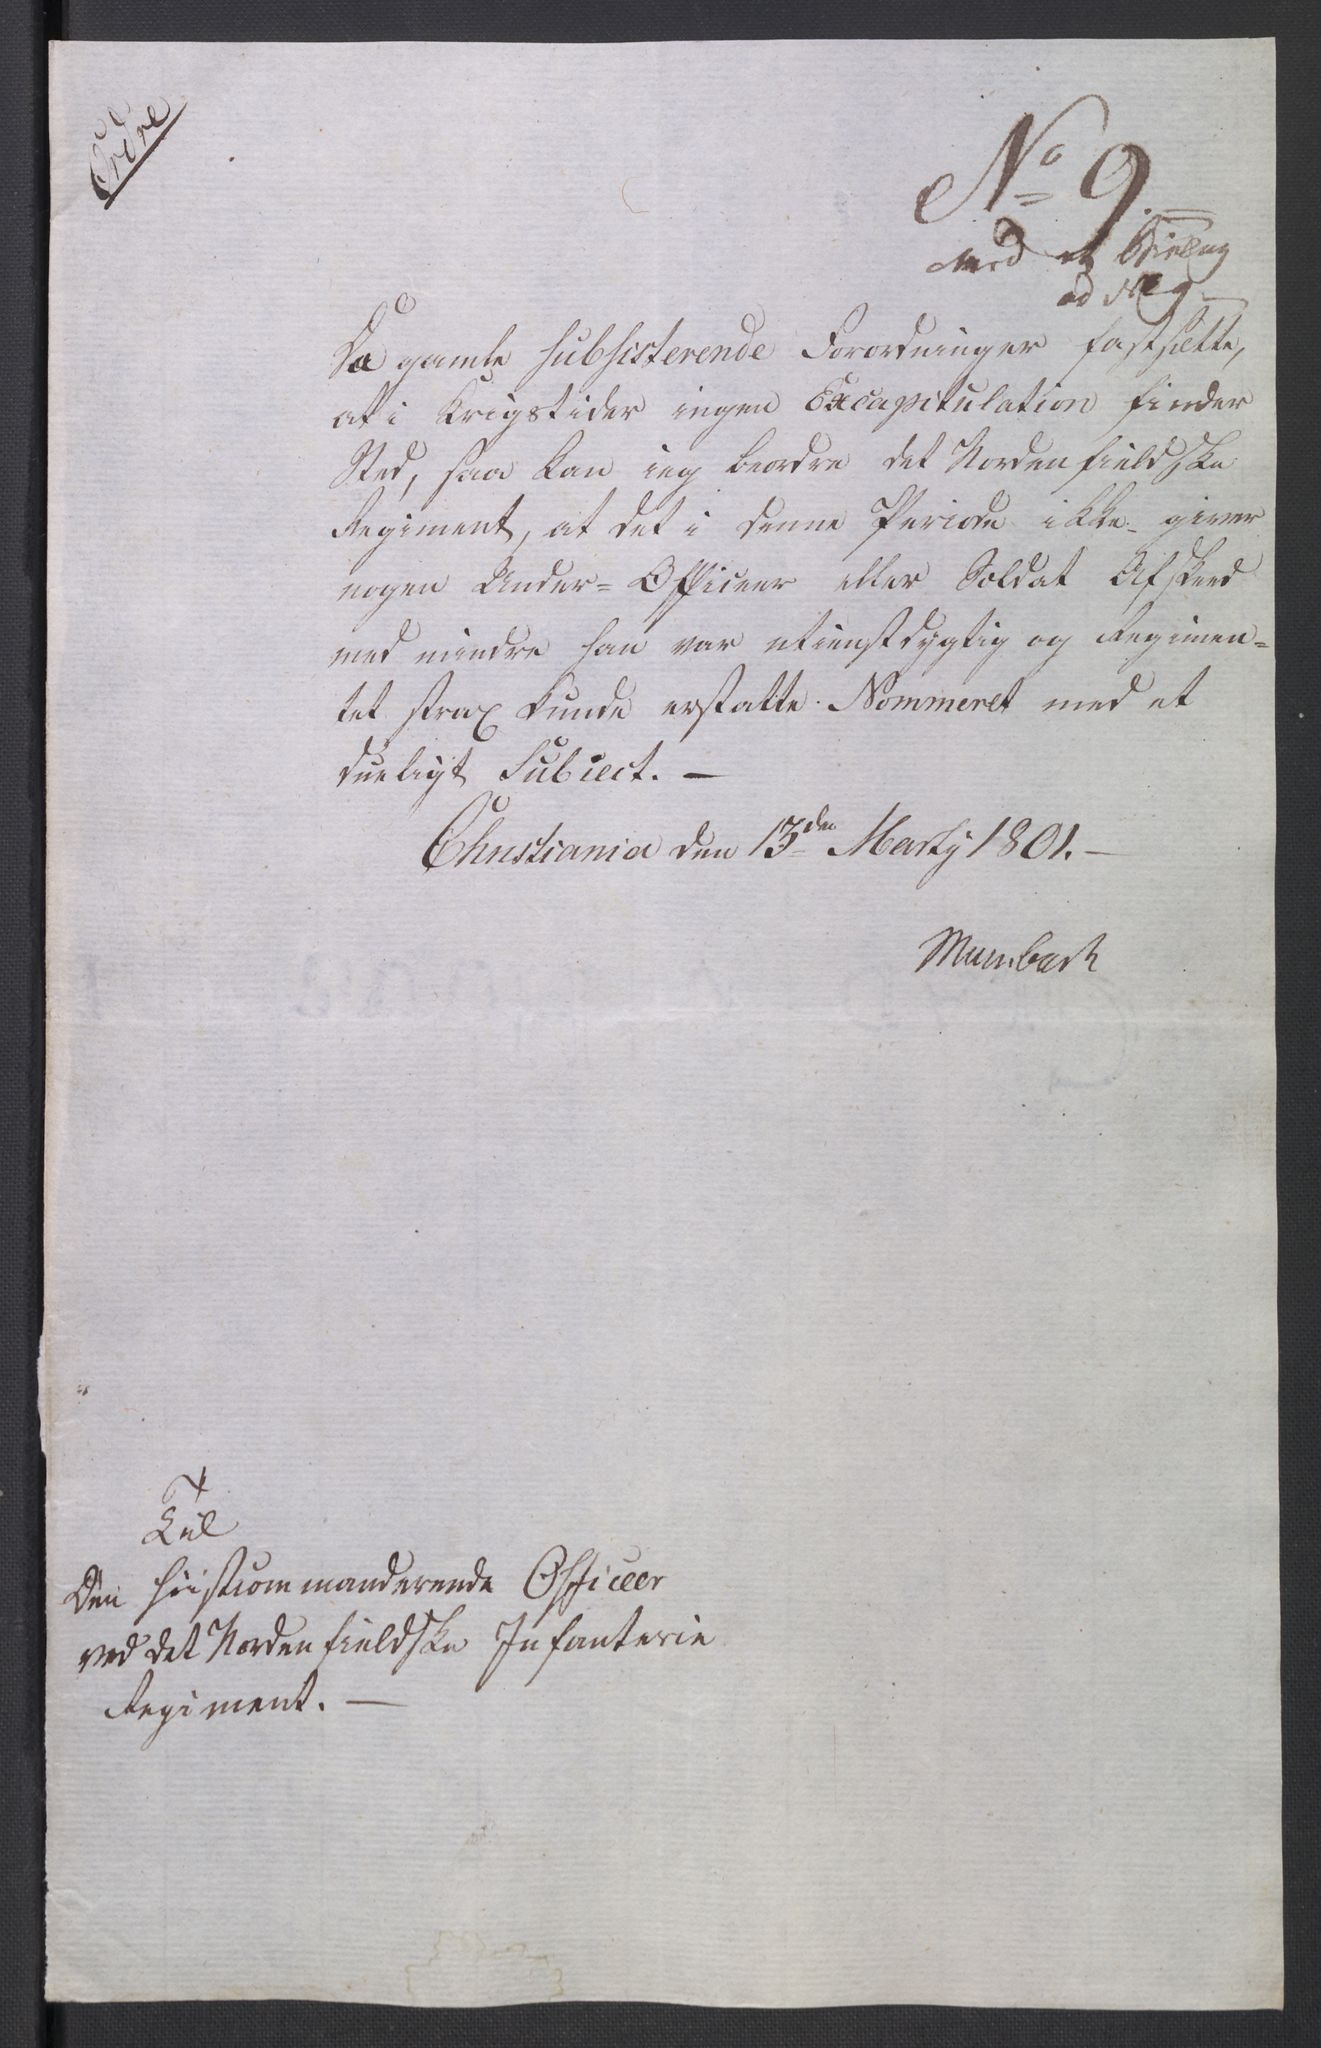 Ordre
No 9.
med et Bielag
ad No 9
Da gamle subsisterende Forordninger fastsætte,
at i Krigstider ingen Excapitulation finder
Sted, saa kan ieg beordre det Nordenfieldske
Regiment, at det i denne Periode ikke giver
nogen Under-Officeer eller Soldat Afskeed
med mindre han var utienstdygtig og Regimen-
tet strax kunde erstatte Nommeret med et
dueligt Subiect. —
Christiania den 13den Martij 1801. —
Til
Den høistcommanderende Officeer
ved det Nordenfieldske Infanterie
Regiment. —